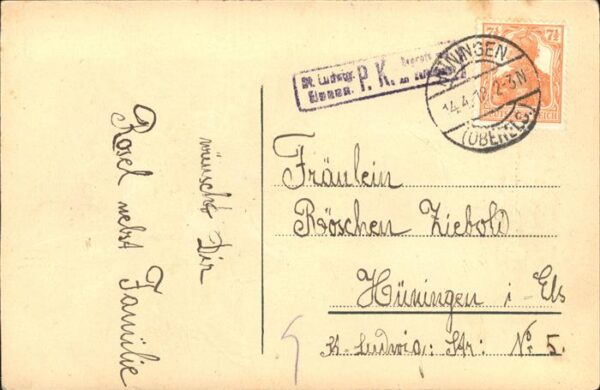 wünscht Dir
Rosel nebst Familie
St. Ludwig
P. K.
Elsass.
HÜNINGEN
14.4.18. 2-3N
(OBERELS)
7½ 7½
Fräulein
Röschen Ziebold
Hüningen i. Els
K. Ludwig: Str: No. 5.